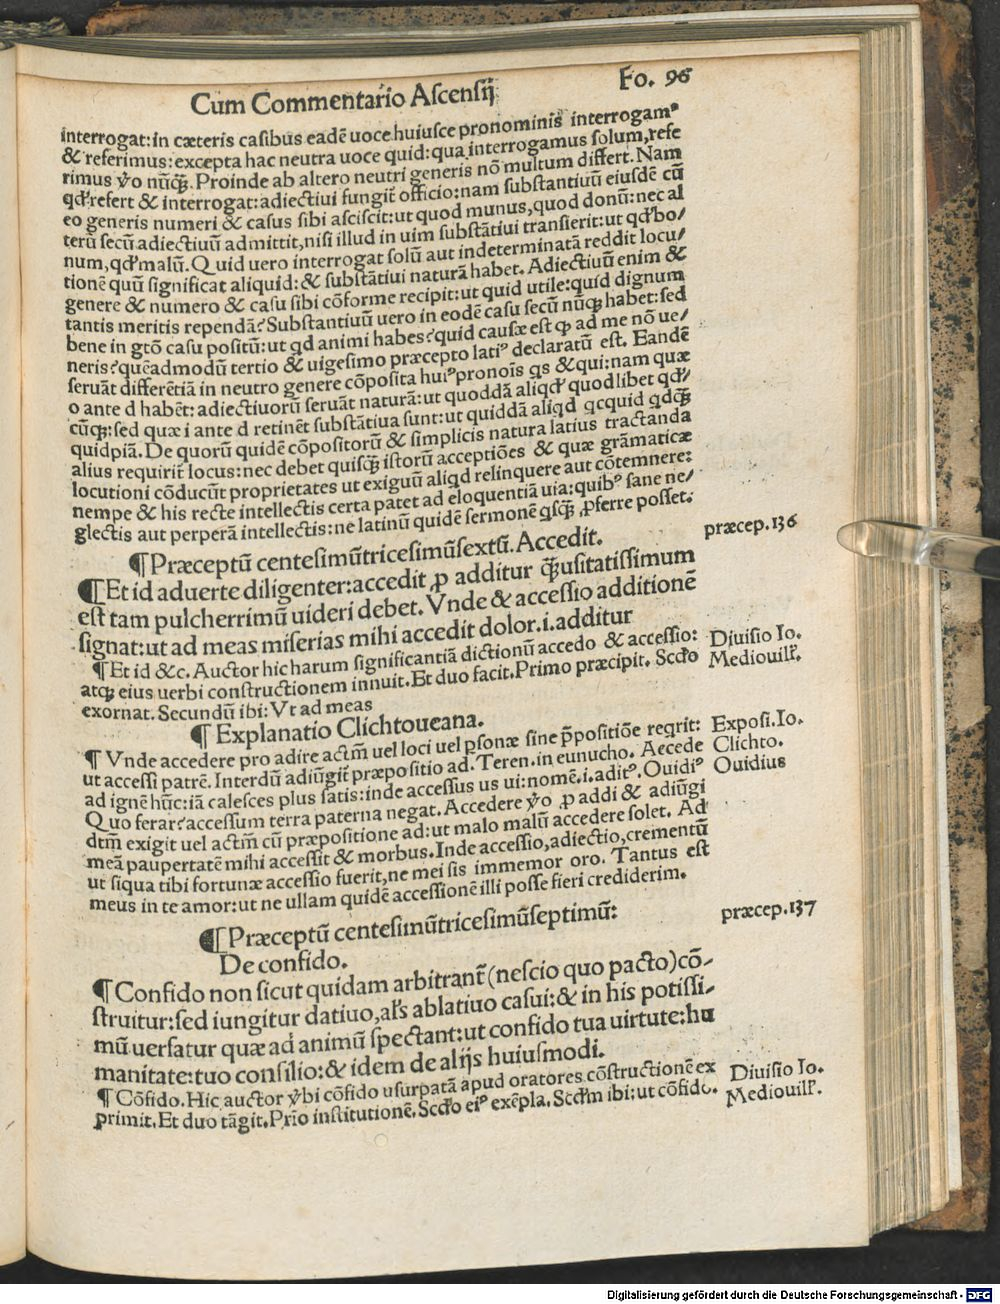 Cum Commentario Ascensij Fo. 96
interrogat: in cæteris casibus eadē uoce huiusce pronominis interrogamꝰ
& referimus: excepta hac neutra uoce quid: qua interrogamus solum, refe
rimus ꝟo nūꝙ̄. Proinde ab altero neutri generis nō multum differt. Nam
qđ refert & interrogat: adiectiui fungit̄ officio: nam substantiuū eiusdē cū
eo generis numeri & casus sibi asciscit: ut quod munus, quod donū: nec al
terū secū adiectiuū admittit, nisi illud in uim substātiui transierit: ut qđ bo/
num, qđ malū. Quid uero interrogat solū aut indeterminatā reddit locu/
tionē quū significat aliquid: & substātiui naturā habet. Adiectiuū enim &
genere & numero & casu sibi cōforme recipit: ut quid utile: quid dignum
tantis meritis rependā? Substantiuū uero in eodē casu secū nūꝙ habet: sed
bene in gtō casu positū: ut qd animi habes? quid causæ est ꝙ ad me nō ue/
neris? quēadmodū tertio & uigesimo præcepto latiꝰ declaratū est. Eandē
seruāt differētiā in neutro genere cōposita huiꝰ pronoīs qs & qui: nam quæ
o ante d habēt: adiectiuorū seruāt naturā: ut quoddā aliqđ quodlibet qđ/
cūꝙ: sed quæ i ante d retinēt substātiua sunt: ut quiddā aliqd qcquid qdꝙ
quidpiā. De quorū quidē cōpositorū & simplicis natura latius tractanda
alius requirit̄ locus: nec debet quisꝙ̄ istorū acceptiōes & quæ grāmaticæ
locutioni cōducūt proprietates ut exiguū aliqd relinquere aut cōtemnere:
nempe & his recte intellectis certa patet ad eloquentiā uia: quibꝰ sane ne/
glectis aut perperā intellectis: ne latinū quidē sermonē qsꝙ̄ ꝓferre posset.
¶ Præceptū centesimūtricesimūsextū. Accedit. præcep. 136
¶ Et id aduerte diligenter: accedit ꝓ additur ꝙ̄usitatissimum
est tam pulcherrimū uideri debet. Vnde & accessio additionē
signat: ut ad meas miserias mihi accedit dolor. i. additur
¶ Et id &c. Auctor hic harum significantiā dictionū accedo & accessio: Diuisio Io.
atꝙ eius uerbi constructionem innuit. Et duo facit. Primo præcipit. Scđo Mediouilȓ.
exornat. Secundū ibi: Vt ad meas
¶ Explanatio Clichtoueana.
¶ Vnde accedere pro adire actm̄ uel loci uel ꝑsonæ sine p̄positiōe reqrit: Exposi. Io.
ut accessi patrē. Interdū adiūgit̄ præpositio ad. Teren. in eunucho. Accede Clichto.
ad ignē hūc: iā calesces plus satis: inde accessus us ui: nomē. i. aditꝰ. Ouidiꝰ Ouidius
Quo ferar? accessum terra paterna negat. Accedere ꝟo ꝓ addi & adiūgi
dtm̄ exigit uel actm̄ cū præpositione ad: ut malo malū accedere solet. Ad
meā paupertatē mihi accessit & morbus. Inde accessio, adiectio, crementū
ut siqua tibi fortunæ accessio fuerit, ne mei sis immemor oro. Tantus est
meus in te amor: ut ne ullam quidē accessionē illi posse fieri crediderim.
¶ Præceptū centesimūtricesimūseptimū: præcep. 137
De confido.
¶ Confido non sicut quidam arbitrant̄ (nescio quo pacto) cō-
struitur: sed iungitur datiuo, alȓs ablatiuo casui: & in his potissi-
mū uersatur quæ ad animū spectant: ut confido tua uirtute: hu
manitate: tuo consilio: & idem de alijs huiusmodi.
¶ Cōfido. Hic auctor ꝟbi cōfido usurpatā apud oratores cōstructionē ex Diuisio Io.
primit. Et duo tāgit. Prīo institutionē. Scđo eiꝰ exēpla. Scđm ibi: ut cōfido. Mediouilȓ.
Digitalisierung gefördert durch die Deutsche Forschungsgemeinschaft - DFG